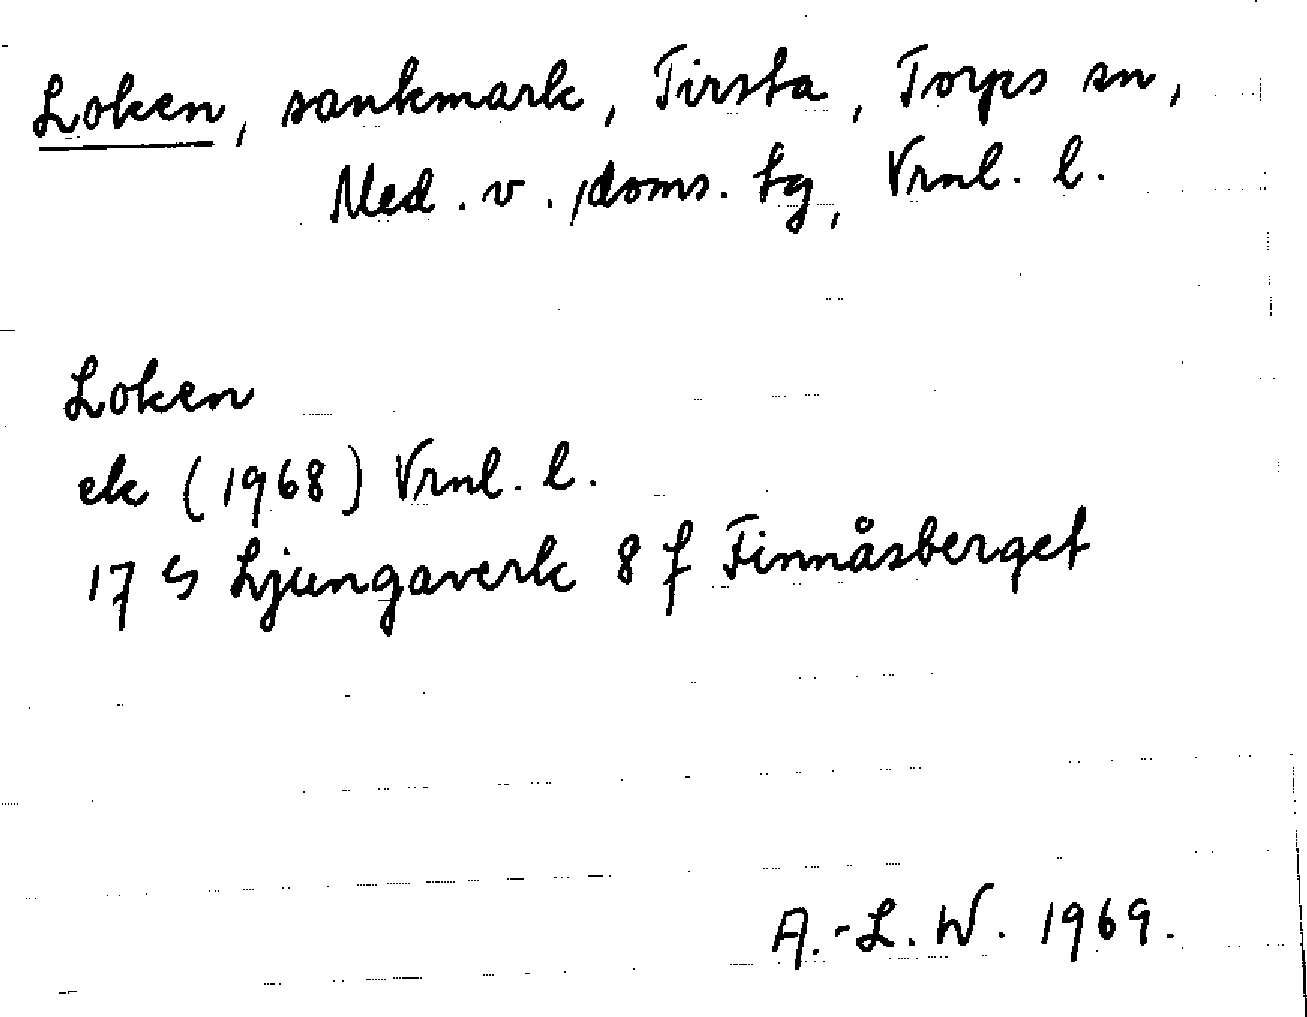 Loken, sankmark, Tirsta, Torps sn,
Med. v. doms. tg, Vrnl. l.
Loken
ek (1968) Vrnl. l.
17 G Ljungaverk 8 f Finnåsberget
A.-L. W. 1969.